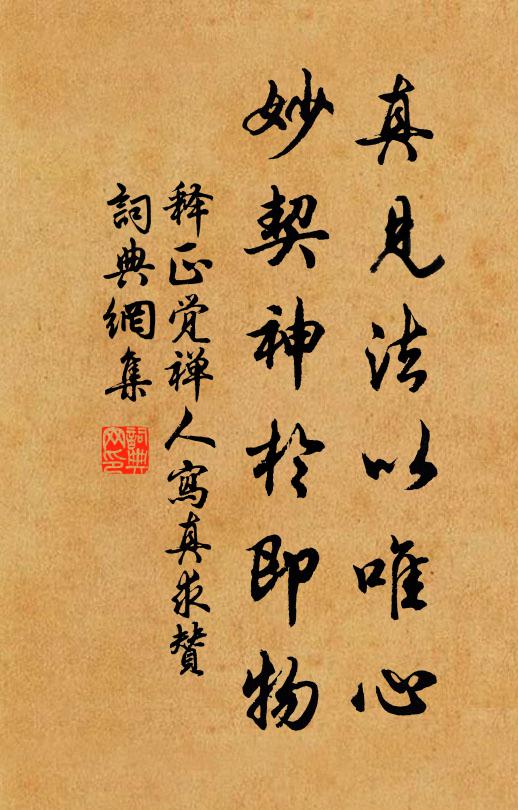 真見法以唯心
妙契神於即物
释正觉禅人寫真求贊
詞典網集
詞典網印